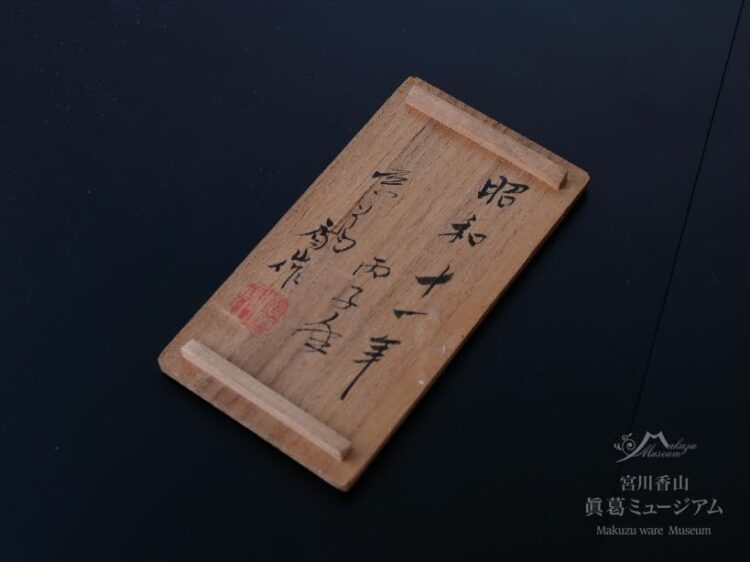 昭和十一年
丙子
作
Makuzu
Museum
宮川香山
眞葛ミュージアム
Makuzu ware Museum